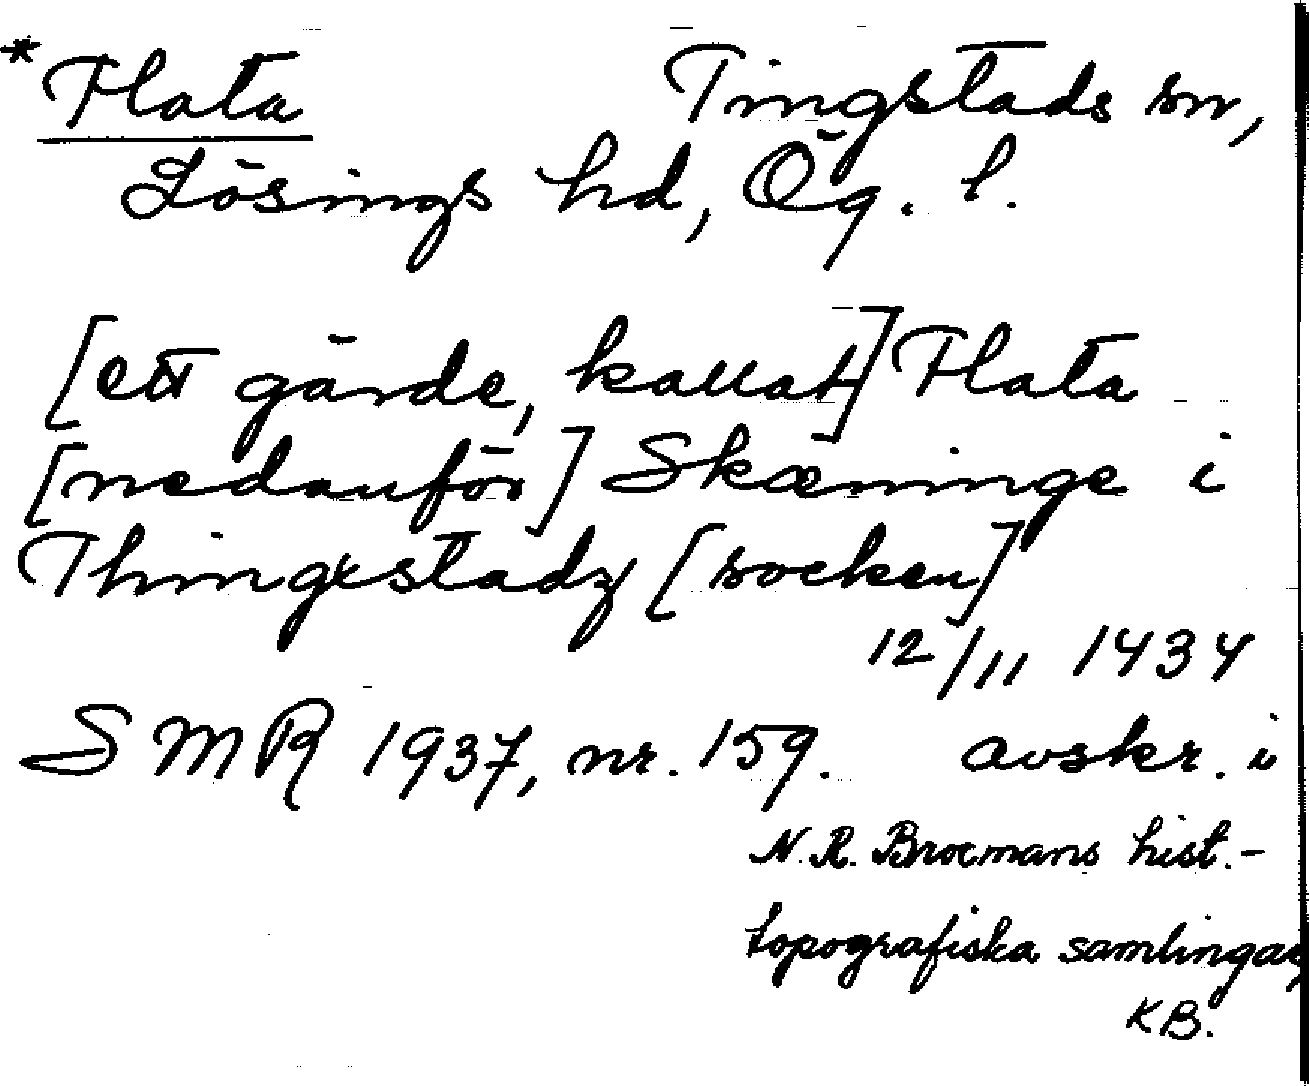 *Flata Tingstads sn,
Lösings hd, Ög. l.
[ett gärde, kallat] Flata
[nedanför] Skæninge i
Thingxstadz [socken]
12/11 1434
SMR 1937, nr. 159. avskr. i
N.R. Brocmans hist.-
topografiska samlingar,
KB.